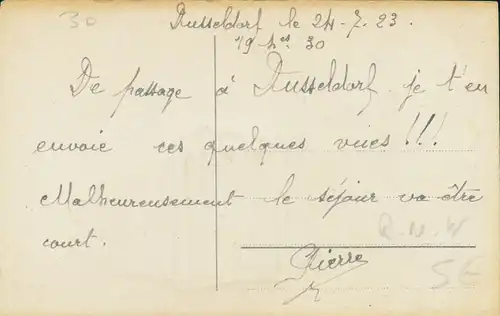 30
Dusseldorf le 24-7.23.
19 hes 30
De passage à Dusseldorf je t'en
envoie ces quelques vues!!!
Malheureusement le séjour va être
court.
R.N.W
Pierre
5E